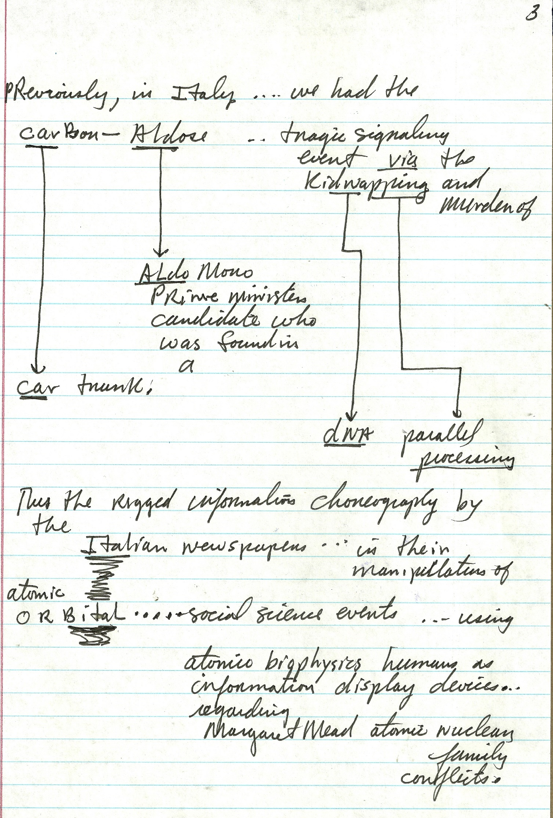 3
PReviously, in Italy .... we had the
carBon - Aldose .. tragic signaling
event via the
Kidnapping and
murder of
ALdo Moro
PRime minister
candidate who
was found in
a
car trunk.
dNA parallel
processing
Thus the rigged information choreography by
the
Italian newspapers ... in their
manipullation of
atomic
ORBital ...... social science events ... using
atomic biophysics humans as
information display devices...
regarding
Margaret Mead atomic nuclear
family
conflicts.